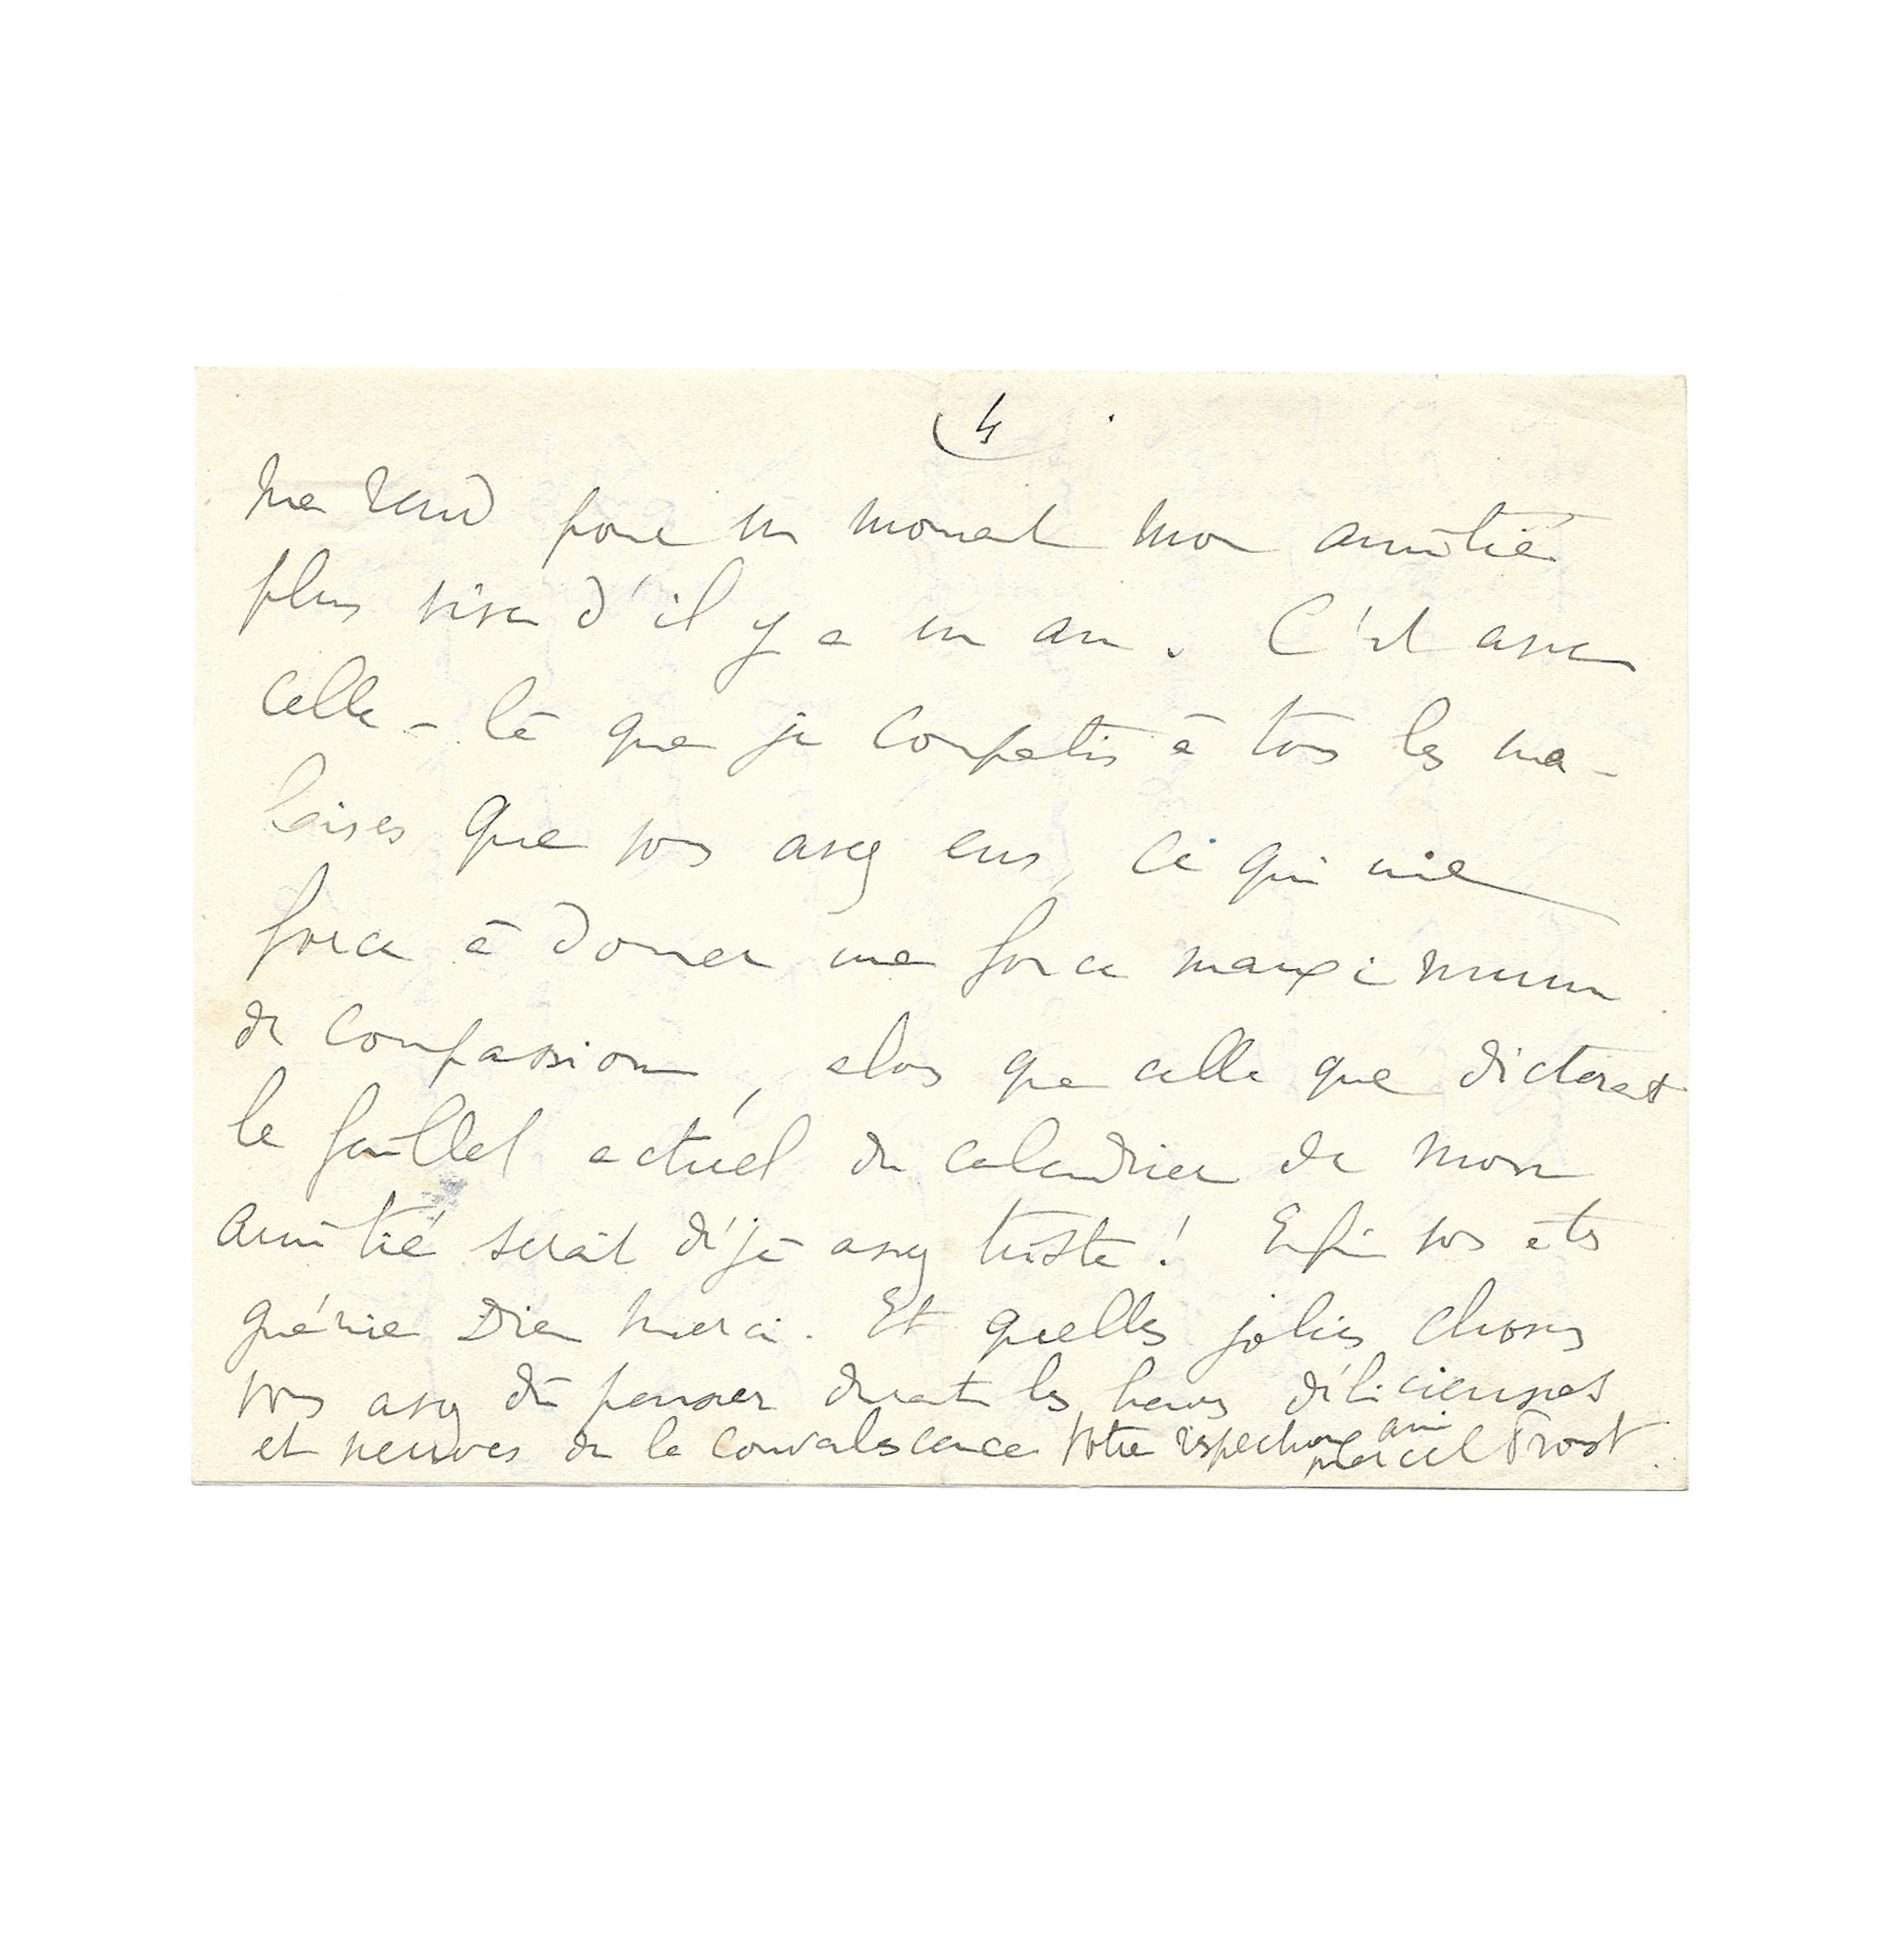 4
me rend pour un moment mon amitié
plus vive d'il y a un an. C'est avec
celle-là que je compatis à tous les ma-
laises que vous avez eus, ce qui me
force à donner une force maxima
de compassion, alors que celle que dicterait
le feuillet actuel du calendrier de mon
amitié serait déjà assez triste! Enfin vous êtes
guérie Dieu merci. Et quelles jolies choses
vous avez dû penser durant les heures délicieuses
et neuves de la convalescence Votre respectueux ami
Marcel Proust